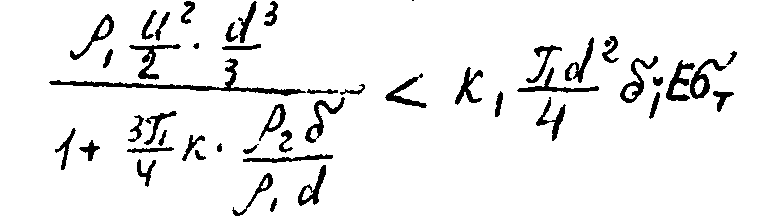 \frac{\rho_1 \frac{u^2}{2} \cdot \frac{d^3}{3}}{1 + \frac{3\pi}{4} K \cdot \frac{\rho_2 \delta}{\rho_1 d}} < K_1 \frac{\pi d^2}{4} \delta_i E \sigma_T